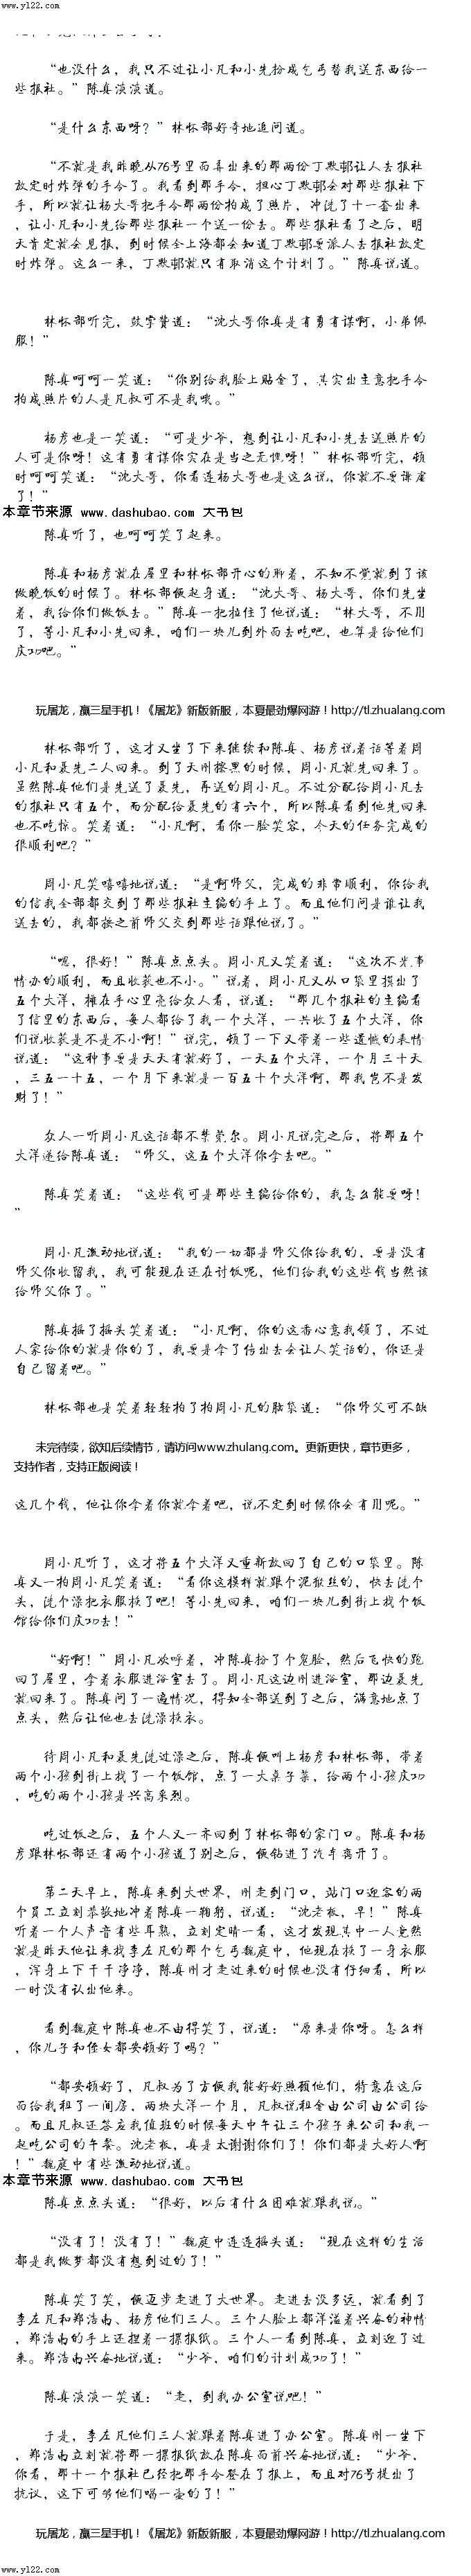 www.yl22.com
“也没什么，我只不过让小凡和小先扮成乞丐替我送东西给一
些报社。”陈真淡淡道。
“是什么东西呀？”林怀部好奇地追问道。
“不就是我昨晚从76号里面弄出来的那两份丁默邨让人去报社
放定时炸弹的手令了。我看到那手令，担心丁默邨会对那些报社下
手，所以就让杨大哥把手令那两份拍成了照片，冲洗了十一套出来
，让小凡和小先给那些报社一个送一份去。那些报社看了之后，明
天肯定就会见报，到时候全上海都会知道丁默邨要派人去报社放定
时炸弹。这么一来，丁默邨就只有取消这个计划了。”陈真说道。
林怀部听完，鼓掌赞道：“沈大哥你真是有勇有谋啊，小弟佩
服！”
陈真呵呵一笑道：“你别给我脸上贴金了，其实出主意把手令
拍成照片的人是凡叔可不是我哦。”
杨彦也是一笑道：“可是少爷，想到让小凡和小先去送照片的
人可是你呀！这有勇有谋你实在是当之无愧呀！”林怀部听完，顿
时呵呵笑道：“沈大哥，你看连杨大哥也是这么说，你就不要谦虚
了！”
本章节来源 www.dashubao.com 大书包
陈真听了，也呵呵笑了起来。
陈真和杨彦就在屋里和林怀部开心的聊着，不知不觉就到了该
做晚饭的时候了。林怀部便起身道：“沈大哥、杨大哥，你们先坐
着，我给你们做饭去。”陈真一把拉住了他说道：“林大哥，不用
了，等小凡和小先回来，咱们一块儿到外面去吃吧，也算是给他们
庆功吧。”
玩屠龙，赢三星手机！《屠龙》新版新服，本夏最劲爆网游！http://tl.zhualang.com
林怀部听了，这才又坐了下来继续和陈真、杨彦说着话等着周
小凡和聂先二人回来。到了天刚擦黑的时候，周小凡就先回来了。
虽然陈真他们是先送了聂先，再送的周小凡。不过分配给周小凡去
的报社只有五个，而分配给聂先的有六个，所以陈真看到他先回来
也不吃惊。笑着道：“小凡啊，看你一脸笑容，今天的任务完成的
很顺利吧？”
周小凡笑嘻嘻地说道：“是啊师父，完成的非常顺利，你给我
的信我全部都交到了那些报社主编的手上了。而且他们问是谁让我
送去的，我都按之前师父交到那些话跟他说了。”
“嗯，很好！”陈真点点头。周小凡又笑着道：“这次不光事
情办的顺利，而且收获也不小。”说着，周小凡又从口袋里摸出了
五个大洋，摊在手心里亮给众人看，说道：“那几个报社的主编看
了信里的东西后，每人都给了我一个大洋，一共收了五个大洋，你
们说收获是不是不小啊！”说完，顿了一下又带着一些遗憾的表情
说道：“这种事要是天天有就好了，一天五个大洋，一个月三十天
，三五一十五，一个月下来就是一百五十个大洋啊，那我岂不是发
财了！”
众人一听周小凡这话都不禁莞尔。周小凡说完之后，将那五个
大洋递给陈真道：“师父，这五个大洋你拿去吧。”
陈真笑着道：“这些钱可是那些主编给你的，我怎么能要呀！
”
周小凡激动地说道：“我的一切都是师父你给我的，要是没有
师父你收留我，我可能现在还在讨饭呢，他们给我的这些钱当然该
给师父你了。”
陈真摇了摇头笑着道：“小凡啊，你的这番心意我领了，不过
人家给你的就是你的了，我要是拿了传出去会让人笑话的，你还是
自己留着吧。”
林怀部也是笑着轻轻拍了拍周小凡的脑袋道：“你师父可不缺
未完待续，欲知后续情节，请访问www.zhulang.com。更新更快，章节更多，
支持作者，支持正版阅读！
这几个钱，他让你拿着你就拿着吧，说不定到时候你会有用呢。”
周小凡听了，这才将五个大洋又重新放回了自己的口袋里。陈
真又一拍周小凡笑着道：“看你这模样就跟个泥猴丝的，快去洗个
头，洗个澡把衣服换了吧！等小先回来，咱们一块儿到街上找个饭
馆给你们庆功去！”
“好啊！”周小凡欢呼着，冲陈真扮了个鬼脸，然后飞快的跑
回了屋里，拿着衣服进浴室去了。周小凡这边刚进浴室，那边聂先
就回来了。陈真问了一遍情况，得知全部送到了之后，满意地点了
点头，然后让他也去洗澡换衣。
待周小凡和聂先洗过澡之后，陈真便叫上杨彦和林怀部，带着
两个小孩到街上找了一个饭馆，点了一大桌子菜，给两个小孩庆功
，吃的两个小孩是兴高采烈。
吃过饭之后，五个人又一齐回到了林怀部的家门口。陈真和杨
彦跟林怀部还有两个小孩道了别之后，便钻进了汽车离开了。
第二天早上，陈真来到大世界，刚走到门口，站门口迎客的两
个员工立刻恭敬地冲着陈真一鞠躬，说道：“沈老板，早！”陈真
听着一个人声音有些耳熟，立刻定睛一看，这才发现其中一人竟然
就是昨天他让来找李左凡的那个乞丐魏庭中，他现在换了一身衣服
，浑身上下干干净净，陈真刚才走过来的时候也没有仔细看，所以
一时没有认出他来。
看到魏庭中陈真也不由得笑了，说道：“原来是你呀。怎么样
，你儿子和侄女都安顿好了吗？”
“都安顿好了，凡叔为了方便我能好好照顾他们，特意在这后
面给我租了一间房，两块大洋一个月，凡叔说租金由公司由公司给
。而且凡叔还答应我值班的时候每天中午让三个孩子来公司和我一
起吃公司的午餐。沈老板，真是太谢谢你们了！你们都是大好人啊
！”魏庭中有些激动地说道。
本章节来源 www.dashubao.com 大书包
陈真点点头道：“很好，以后有什么困难就跟我说。”
“没有了！没有了！”魏庭中连连摇头道：“现在这样的生活
都是我做梦都没有想到过的了！”
陈真笑了笑，便迈步走进了大世界。走进去没多远，就看到了
李左凡和郑浩南、杨彦他们三人。三个人脸上都洋溢着兴奋的神情
，郑浩南的手上还捏着一摞报纸。三个人一看到陈真，立刻迎了过
来。郑浩南兴奋地说道：“少爷，咱们的计划成功了！”
陈真淡淡一笑道：“走，到我办公室说吧！”
于是，李左凡他们三人就跟着陈真进了办公室。陈真刚一坐下
，郑浩南立刻就将那一摞报纸放在陈真面前兴奋地说道：“少爷，
你看，那十一个报社已经把那手令登在了报上，而且对76号提出了
抗议，这下可够他们喝一壶的了！”
玩屠龙，赢三星手机！《屠龙》新版新服，本夏最劲爆网游！http://tl.zhualang.com
www.yl22.com